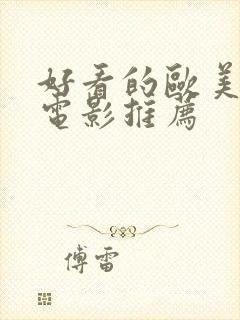 好看的歐美
電影推薦
傅雷